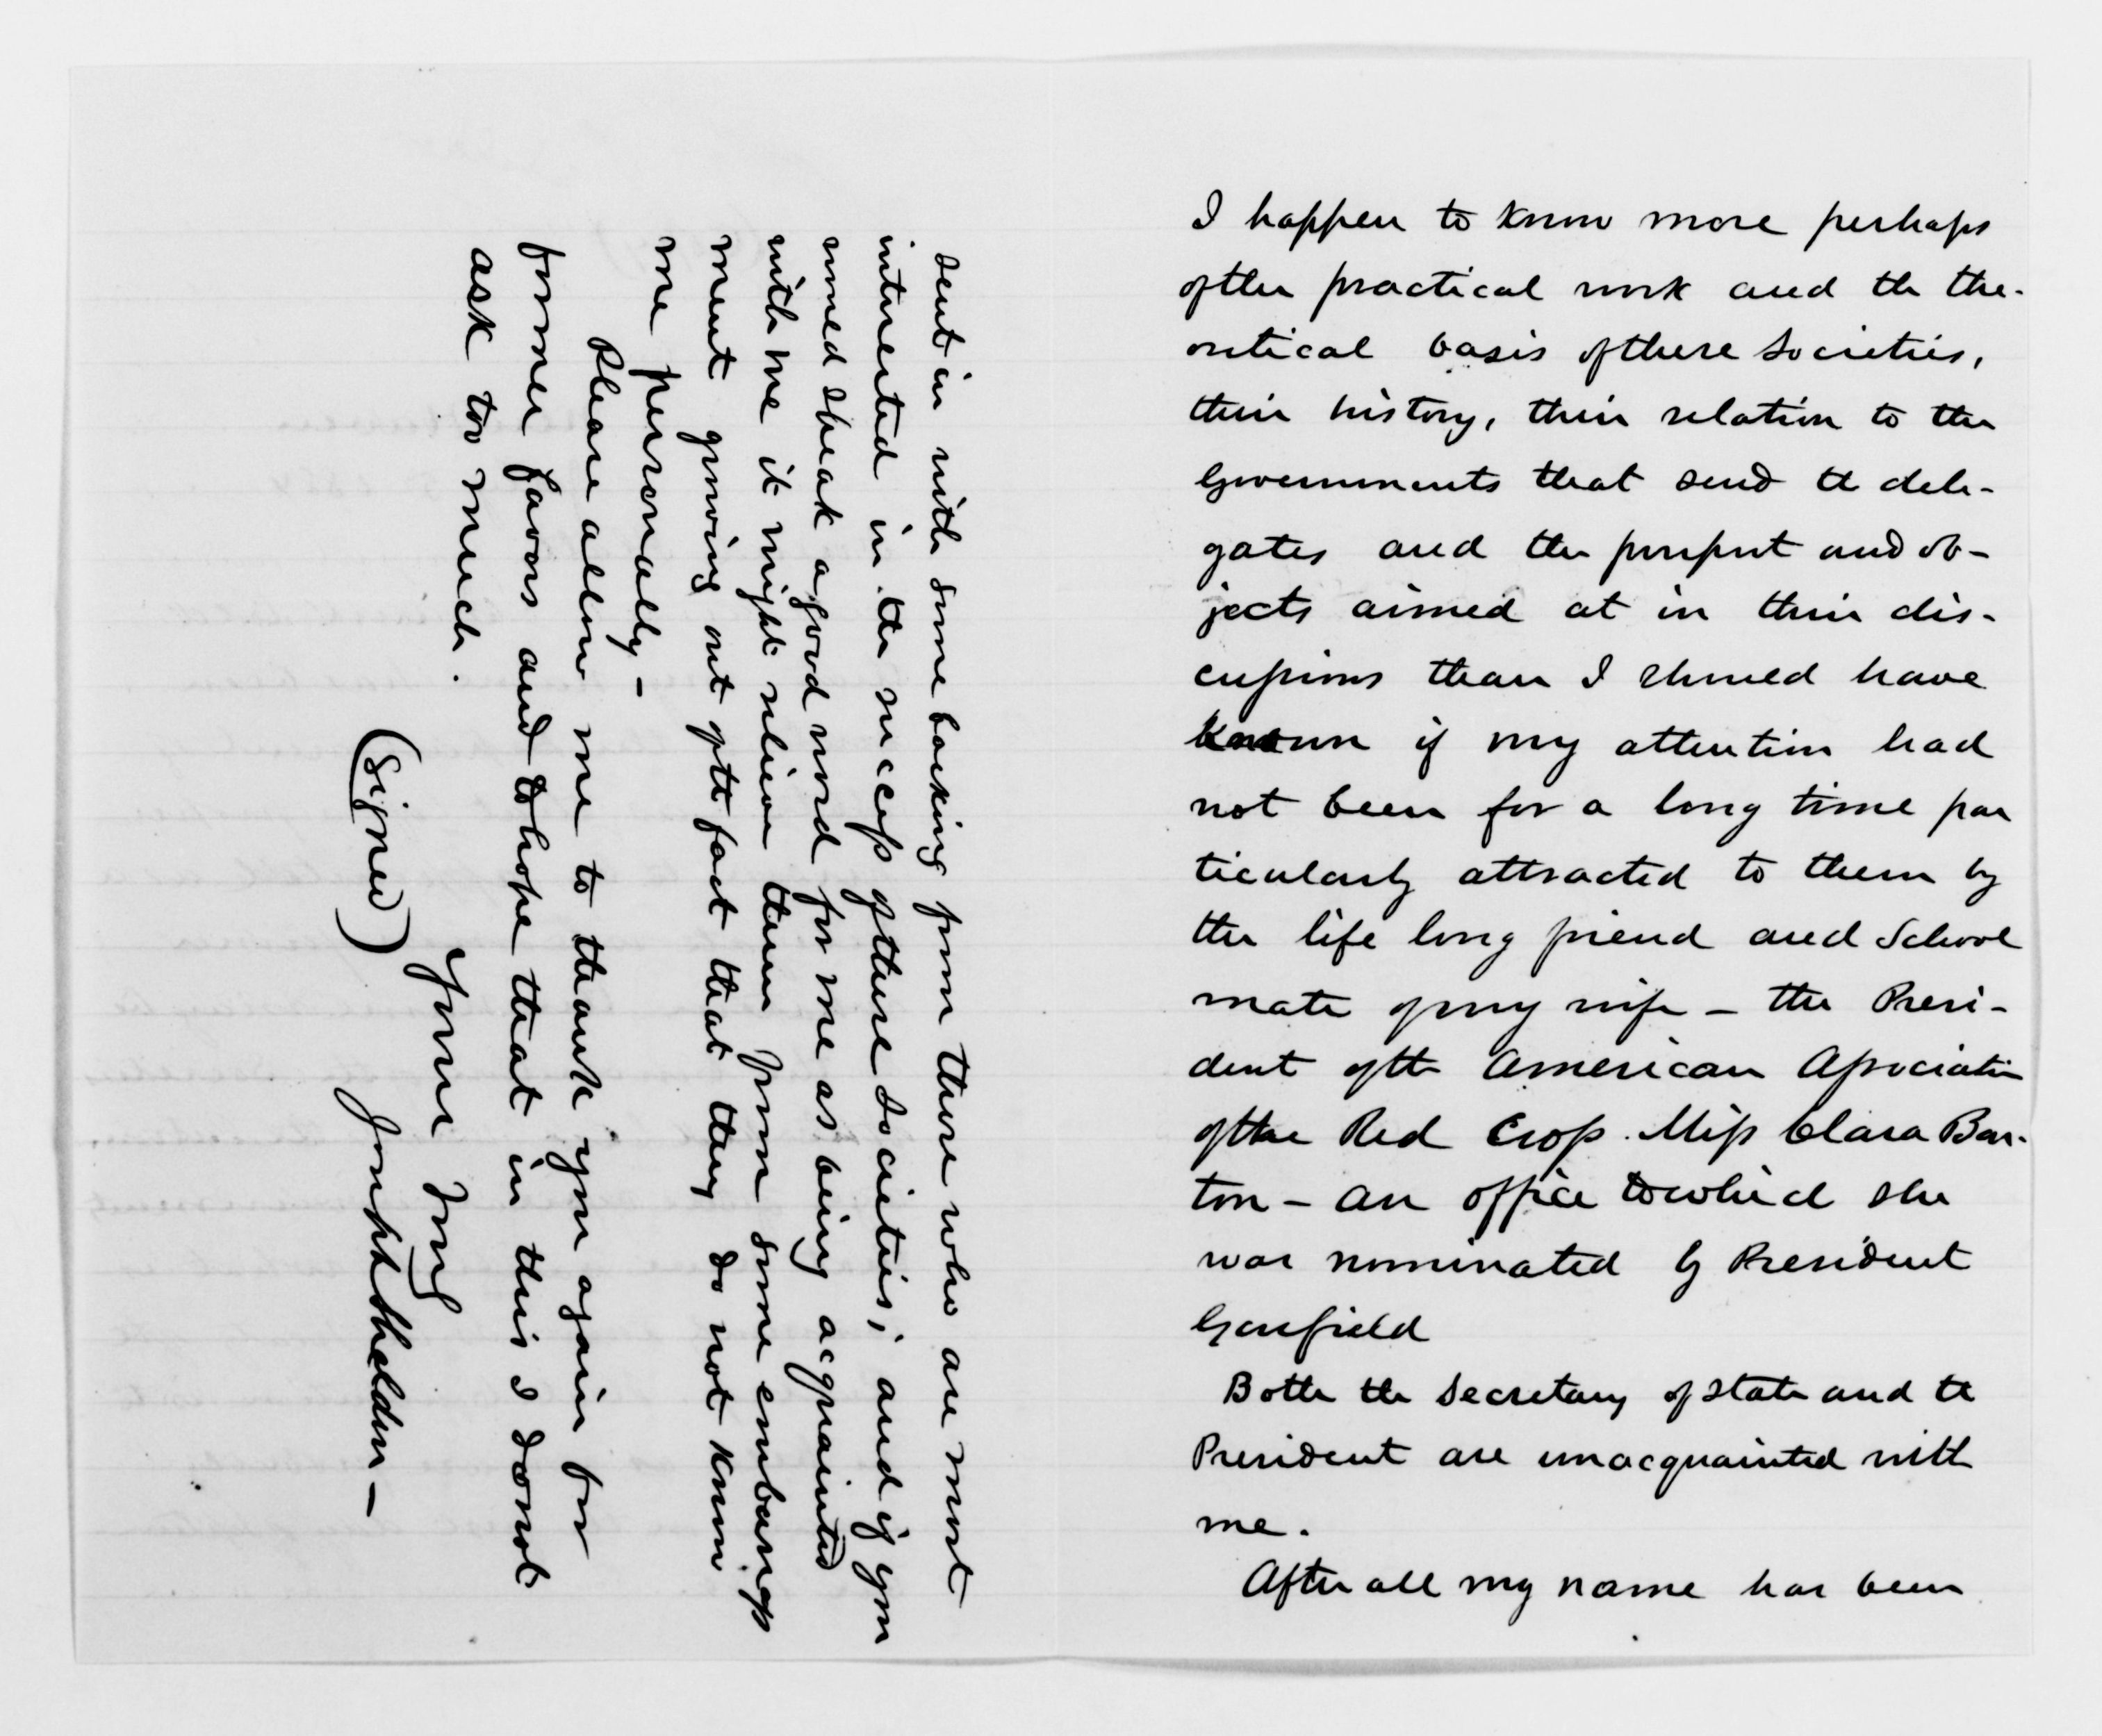 I happen to know more perhaps
of the practical work and the the-
oretical basis of these Societies,
their history, their relation to the
Governments that send the dele-
gates and the purport and ob-
jects aimed at in their dis-
cussions than I should have
known if my attention had
not been for a long time par
ticularly attracted to them by
the life long friend and School
mate of my wife - the Presi-
dent of the American Association
of the Red Cross. Miss Clara Bar-
ton - an office to which she
was nominated by President
Garfield
Both the Secretary of State and the
President are unacquainted with
me.
After all my name has been
sent in with some backing from those who are most
interested in the success of these Societies; and if you
would speak a good word for me as being acquainted
with me it might relieve them from some embarrass
ment growing out of the fact that they do not know
me personally -
Please allow me to thank you again for
former favors and to hope that in this I do not
ask too much.
Yours truly
(Signed) Joseph Sheldon -